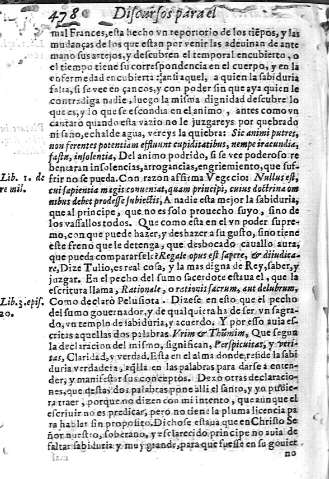 478 Discursos para el
mal Frances, esta hecho vn reportorio de los tiẽpos, y las
mudanças de los que estan por venir las adeuinan de ante
mano sus artejos, y descubren el temporal encubierto, o
el tiempo tiene su correspondencia en el cuerpo, y en la
enfermedad encubierta: antiaquel, a quien la sabiduria
falta, si se vee en çancos, y con poder sin que aya quien le
contradiga nadie, luego la misma dignidad descubre lo
que es, y lo que se escondia en el animo, antes como vn
cantaro quando esta vazio no le juzgareys por quebrado
ni sano, echalde agua, vereys la quiebra: Sic animi putres,
non ferentes potentiam effluunt cupiditatibus, nempe iracundia,
fastu, insolentia. Del animo podrido, si se vee poderoso re
bentaran insolencias, arrogancias, engriemiento, que suf-
Lib. 1. de re mil.
frir no se pueda. Con razon affirma Vegecio Nullus est,
cui sapientia magis conueniat, quam principi, cuius doctrina om
nibus debet prodesse subiectis, A nadie esta mejor la sabiduria,
que al principe, que no es solo prouecho suyo, sino de
los vassallos todos. Que como esta en el vn poder supre
mo, con que puede hazer, y deshazer a su gusto, sino tiene
este freno que le detenga, que desbocado cauallo aura
que pueda compararsele? Regale opus est sapere, & diiudica-
re, Dize Tulio, es real cosa, y la mas digna de Rey, saber, y
juzgar. En el pecho del sumo sacerdote estaua el, que la
escritura llama, Rationale, o rationis sacrum, aut delubrum,
Lib. 3. epis. 20.
Como declaró Pelusiota. Dizese en esto que el pecho
del sumo gouernador, y de qualquiera ha de ser vn sagra-
do, vn templo de sabiduria, y acuerdo. Y por esso auia es
critas aquellas dos palabras Vrim & Thũmim, Que segun
la declaracion del mismo, significan, Perspicuitas, y veri-
tas, Claridad, y verdad. Esta en el alma donde reside la sabi
duria verdadera, aq̃lla en las palabras para darse a enten
der, y manifestar sus conceptos. Dexo otras declaracio-
nes, que destas dos palabras pone alli el santo, y yo pudie-
ra traer, porque no dizen con mi intento, que aunque el
escriuir no es predicar, pero no tiene la pluma licencia pa
ra hablar sin proposito. Dichose estaua que en Christo Se
ñor nuestro, soberano, y esclarecido principe no auia de
faltar sabiduria y muy grande, para que fuesse en su gouier
no